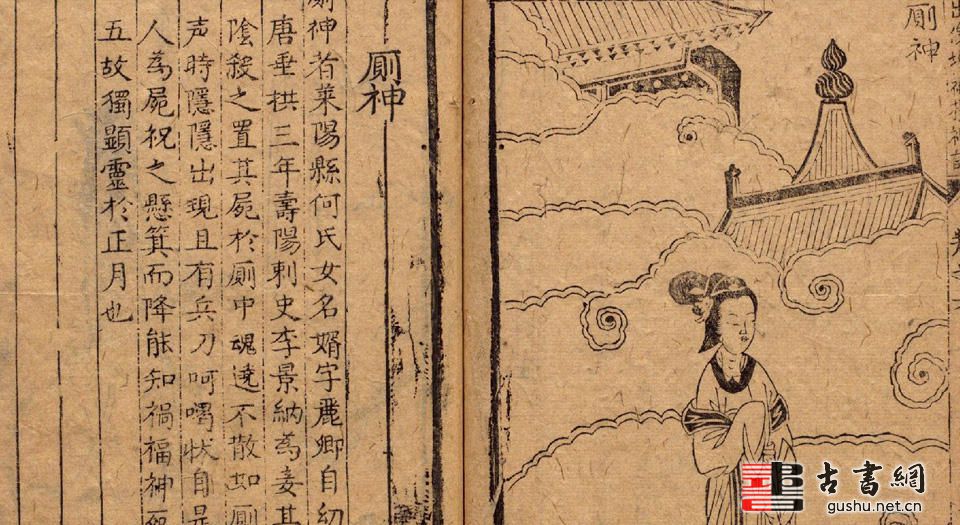 厠神
厠神
神者萊陽縣何氏女名媚字麗卿自幼
唐垂拱三年壽陽刺史李景納為妾其
陰殺之置其屍於厠中魂遶不散如厠
声時隱隱出現且有兵刀呵喝状自是
人為屍祝之懸箕而降能知禍福神
五故獨顯靈於正月也
古書網
gushu.net.cn